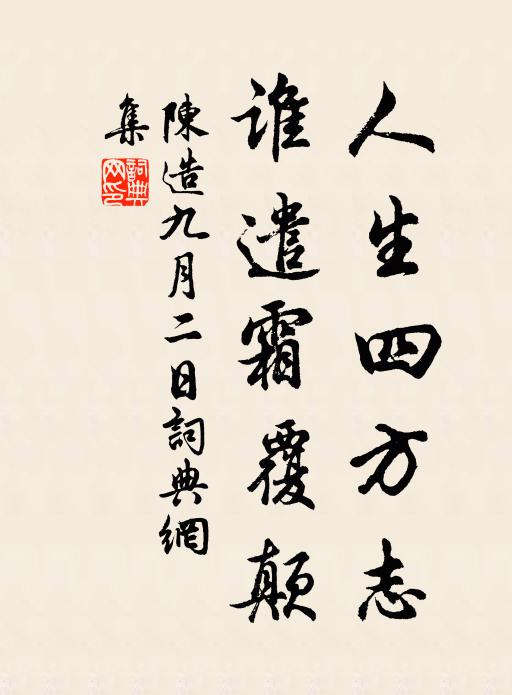 人生四方志
谁遣霜覆颠
陳造九月二日詞典網
集
詞典網印